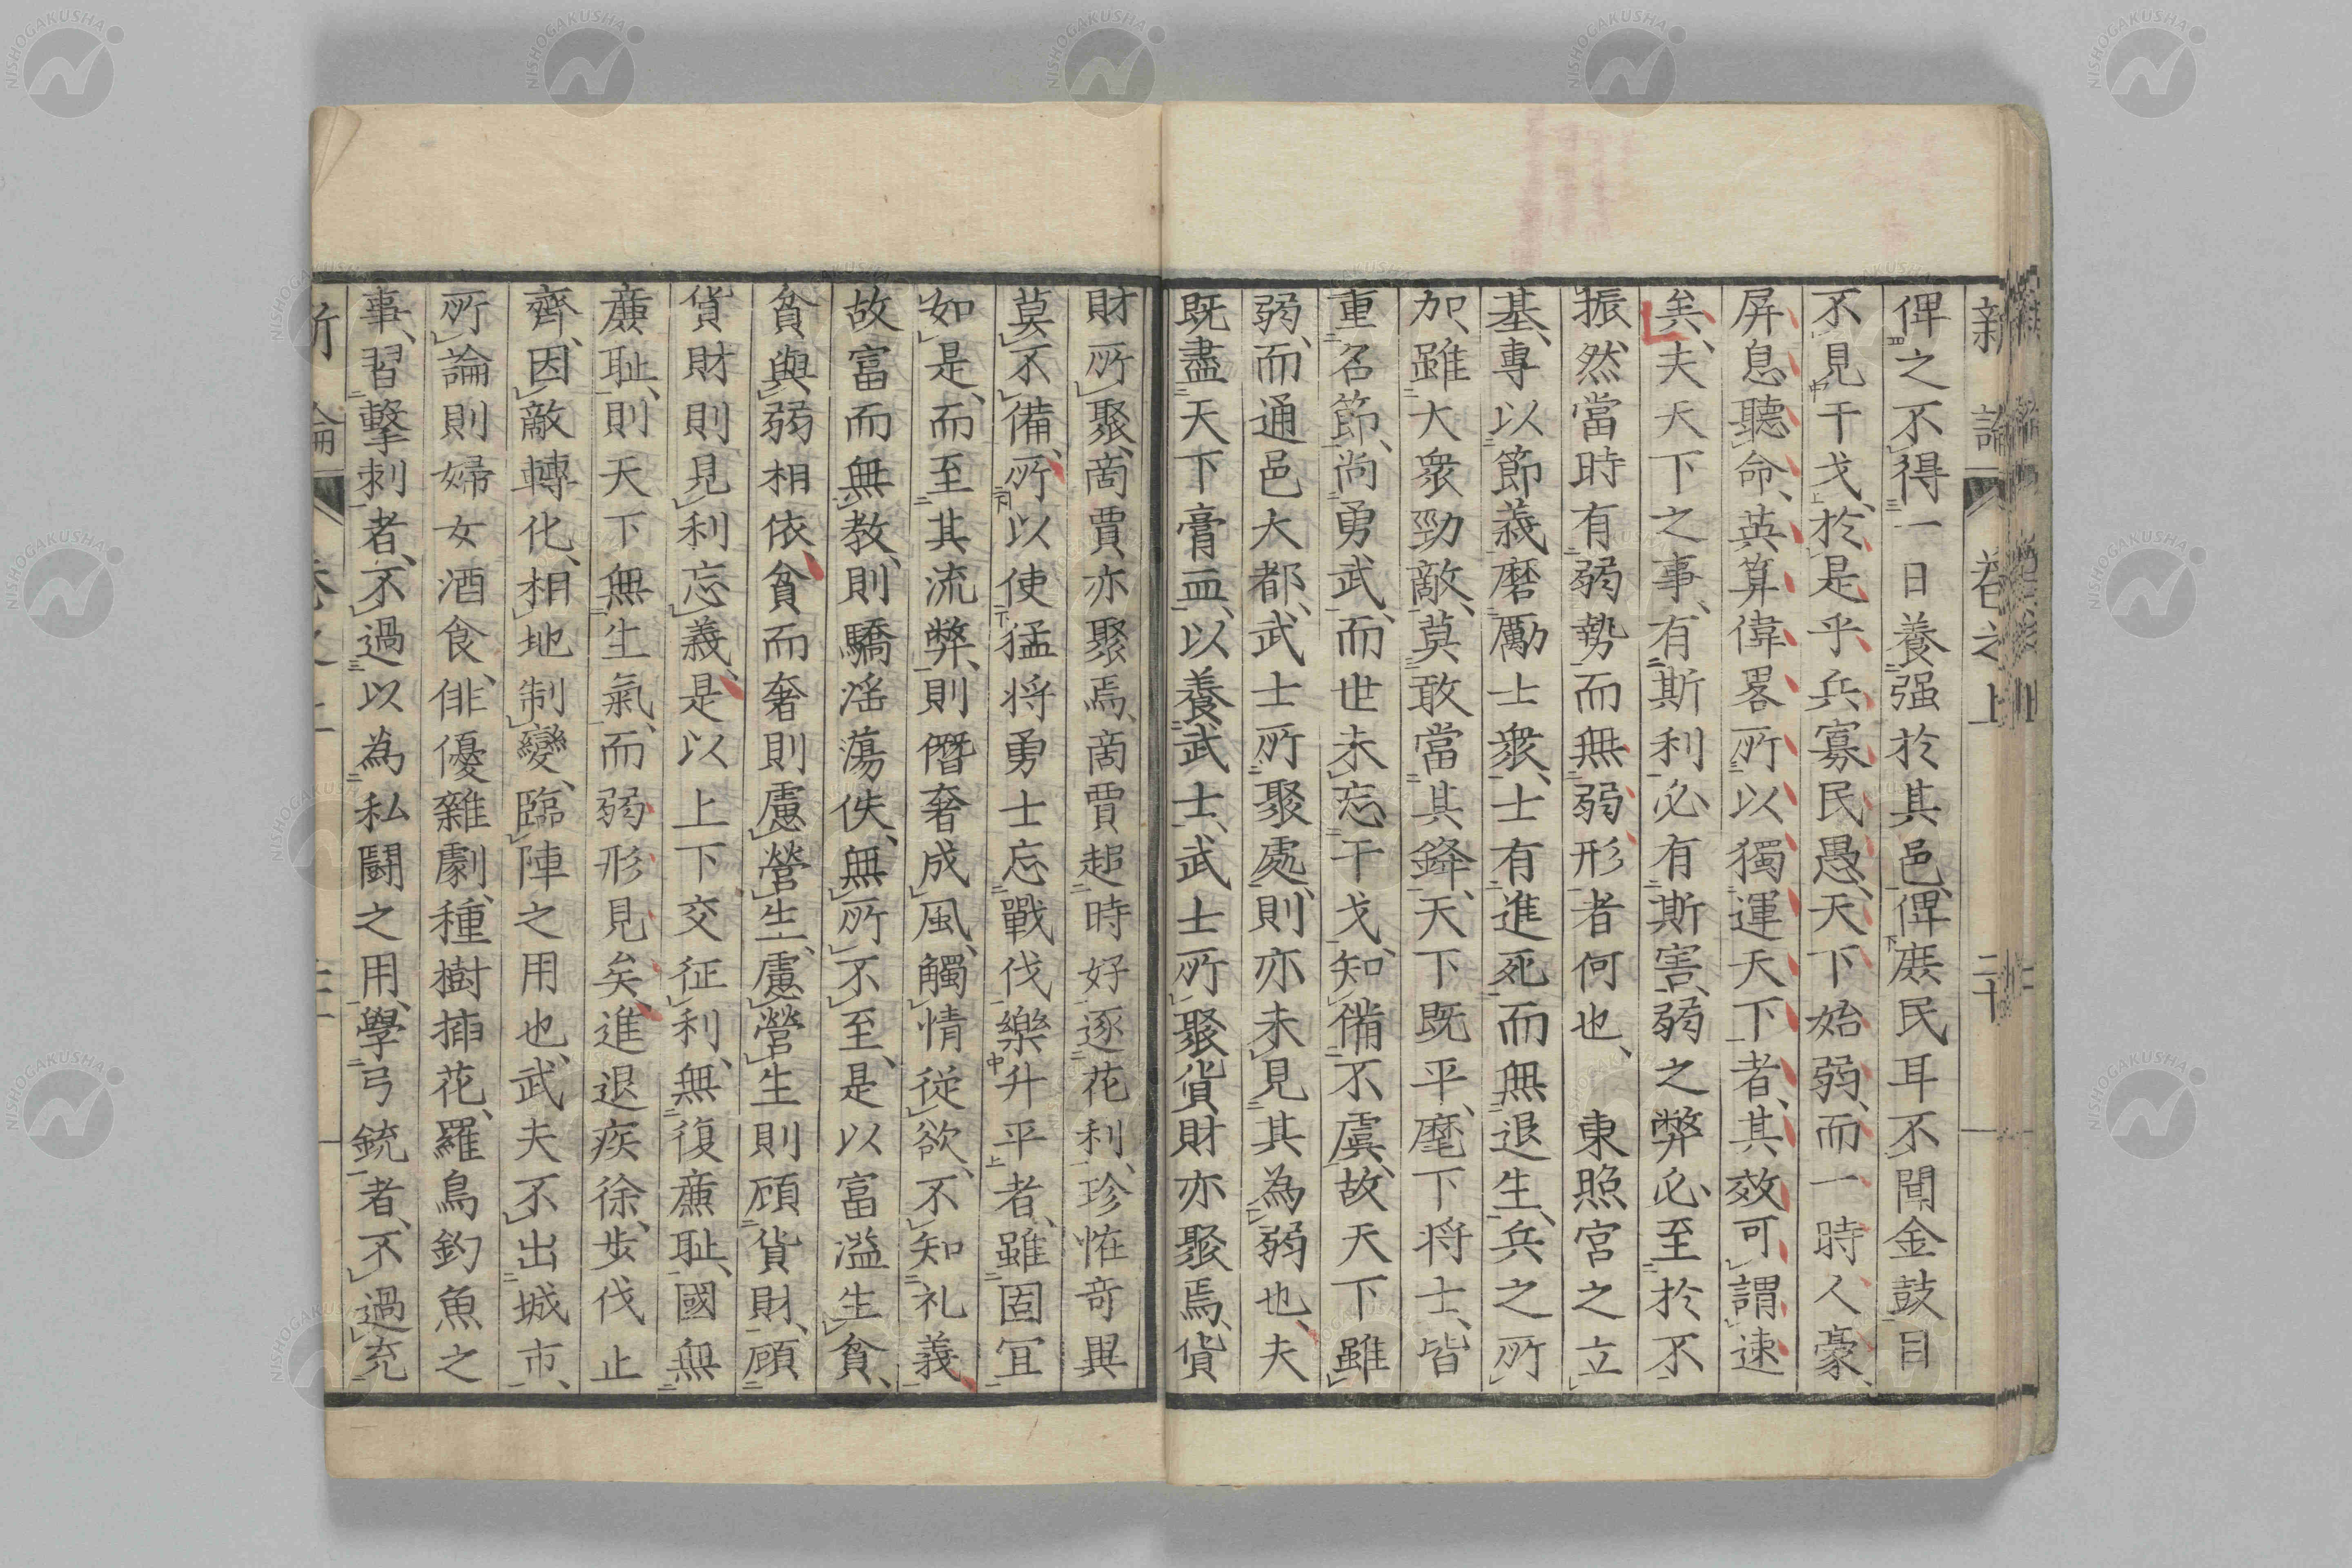 新論 卷之上 二十
俾之不得一日養强於其邑、俾庶民耳不聞金鼓目
不見干戈、於是乎兵寡民愚、天下始弱、而一時人豪、
屏息聽命、英算偉畧所以獨運天下者、其效可謂速
矣、夫天下之事、有斯利必有斯害、弱之弊必至於不
振、然當時有弱勢而無弱形者何也、東照宮之立
基、專以節義磨勵士衆、士有進死而無退生、兵之所
加、雖大衆勁敵、莫敢當其鋒、天下既平、麾下將士、皆
重名節、尚勇武、而世未忘干戈、知備不虞、故天下雖
弱、而通邑大都、武士所聚處、則亦未見其為弱也、夫
既盡天下膏血、以養武士、武士所聚貨財亦聚焉、貨
財所聚、商賈亦聚焉、商賈趨時好逐花利、珍恠奇異
莫不備、所以使猛将勇士忘戰伐樂升平者、雖固冝
如是、而至其流弊、則僭奢成風、觸情從欲、不知礼義
故富而無教、則驕淫蕩佚、無所不至、是以富溢生貧、
貧與弱相依、貧而奢則慮營生、慮營生則顧貨財、顧
貨財則見利忘義、是以上下交征利、無復廉耻、國無
廉耻、則天下無生氣、而弱形見矣、進退疾徐、步伐止
齊、因敵轉化、相地制變、臨陣之用也、武夫不出城市、
所論則婦女酒食、俳優雜劇、種樹揷花、羅鳥釣魚之
事、習擊刺者、不過以為私鬪之用、學弓銃者、不過充